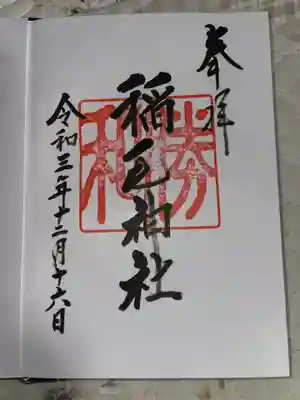 奉拝
稲毛神社
令和三年十二月十六日